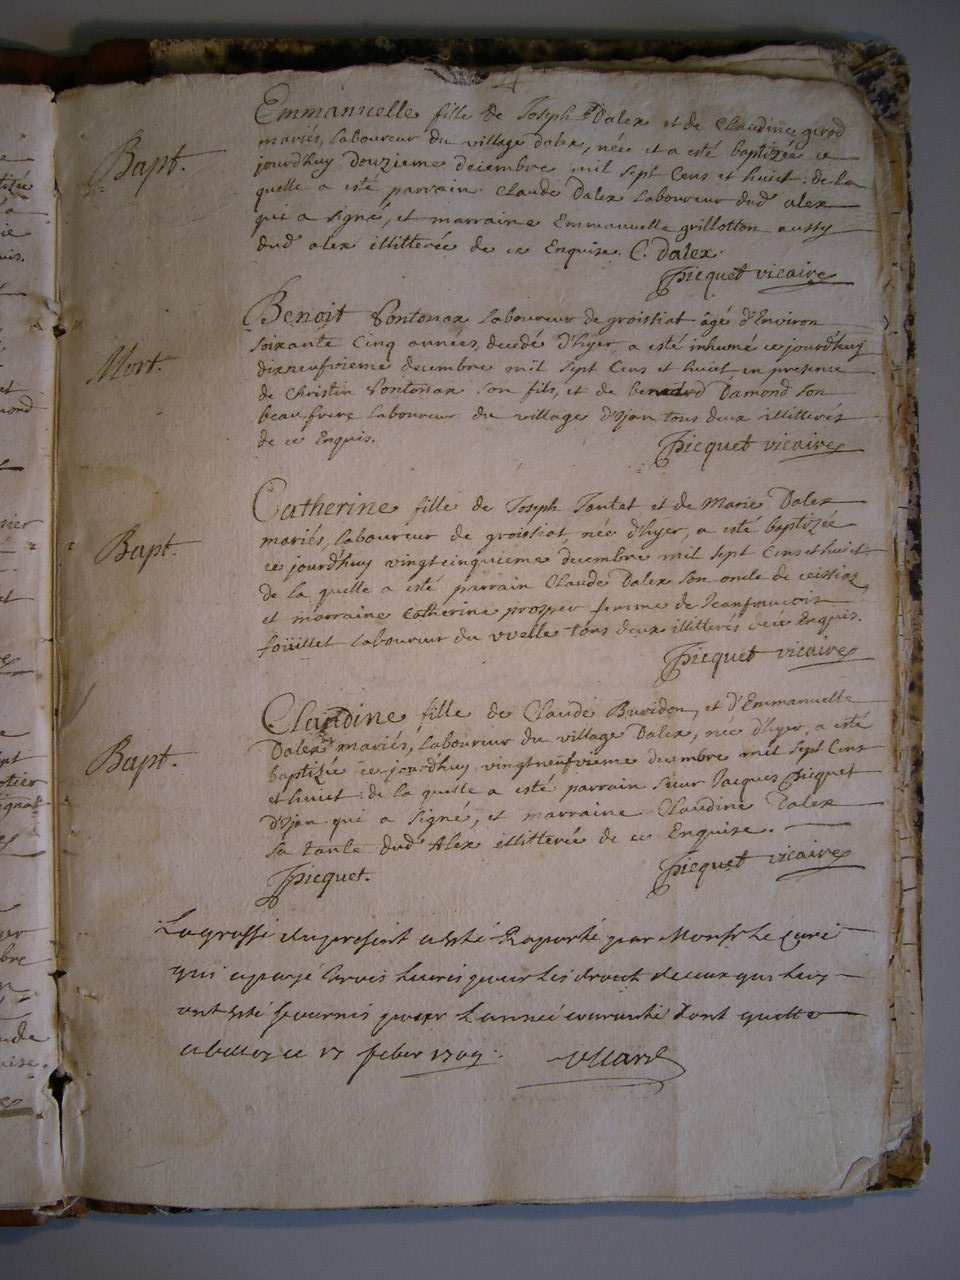 Bapt.
Emmanuelle fille de Joseph Dalex et de Claudine girod
mariés, laboureur du village dalex, née et a esté baptizée ce
jourdhuy douzieme decembre mil sept Cens et huict. de la
quelle a esté parrain Claude Dalex laboureur dud. alex
qui a signé, et marraine Emmanuelle grillotton aussy
dud. alex illitterée de ce Enquise. C. Dalex.
Picquet vicaire
Mort.
Benoit Pontonax laboureur de groissiat âgé d'Environ
soixante Cinq années, decedé d'hyer a esté inhumé ce jourdhuy
dixneufvieme decembre mil sept Cens et huict en presence
de Christin Pontonax son fils, et de benard Damond son
beaufrere laboureur du village d'Jjon tous deux illitterés
de ce Enquis.
Picquet vicaire
Bapt.
Catherine fille de Joseph Tontet et de Marie Dalex
mariés, laboureur de groissiat, née d'hyer, a esté baptizée
ce jourd'huy vingtcinquieme decembre mil sept Cens et huict
de la quelle a esté parrain Claude Dalex son oncle de
et marraine Catherine prosper femme de Jeanfrancois
foüillet laboureur du tous deux illitterés de ce Enquis.
Picquet vicaire
Bapt.
Claudine fille de Claude Buvidon, et d'Emmanuelle
Dalex mariés, laboureur du village Dalex, née d'hyer, a esté
baptizée ce jourdhuy vingtneufvieme decembre mil sept Cens
et huict: de la quelle a esté parrain sieur Jacques Picquet
d'Jjon qui a signé, et marraine Claudine Dalex
sa tante dud. Alex illitterée de ce Enquise.
Picquet.
Picquet vicaire
La grosse du present a esté Raporté par Monsr Le Curé
qui a payé trois Livres pour les droits de ceux qui luy
ont esté fournis pour L'année courante Dont quitte
a belley ce 17 febvr 1709.